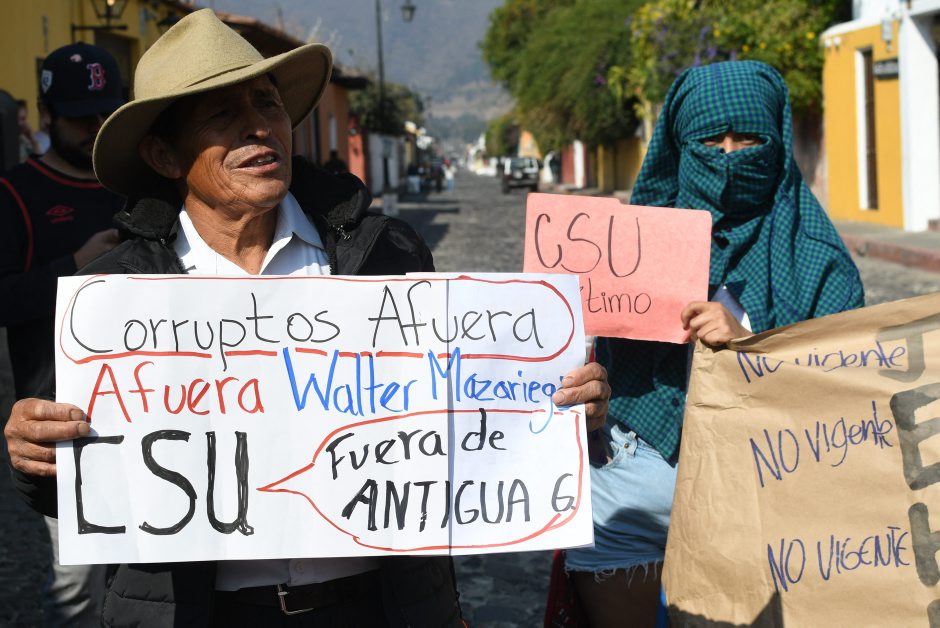 Corruptos Afuera
Afuera Walter Mazarieg
CSU
Fuera de
ANTIGUA G
CSU
NO VIGENTE
NO VIGENTE
NO VIGENTE
B